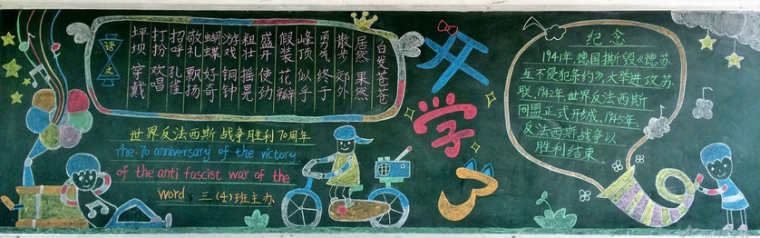 语文
白发苍苍
居然 果然
散步 郊外
勇气 终于
峰顶 似乎
假装 花瓣
盛开 使劲
粗壮 摇晃
游戏 铜钟
蝴蝶 好奇
敬礼 飘扬
招呼 孔雀
打扮 欢唱
坪坝 穿戴
世界反法西斯战争胜利70周年
the 70 anniversary of the victory
of the anti fascist war of the
word 三(4)班主办
开学了
纪念
1941年,德国撕毁《德苏
互不侵犯条约》,大举进攻苏
联,1942年世界反法西斯
同盟正式形成,1945年
反法西斯战争以
胜利结束